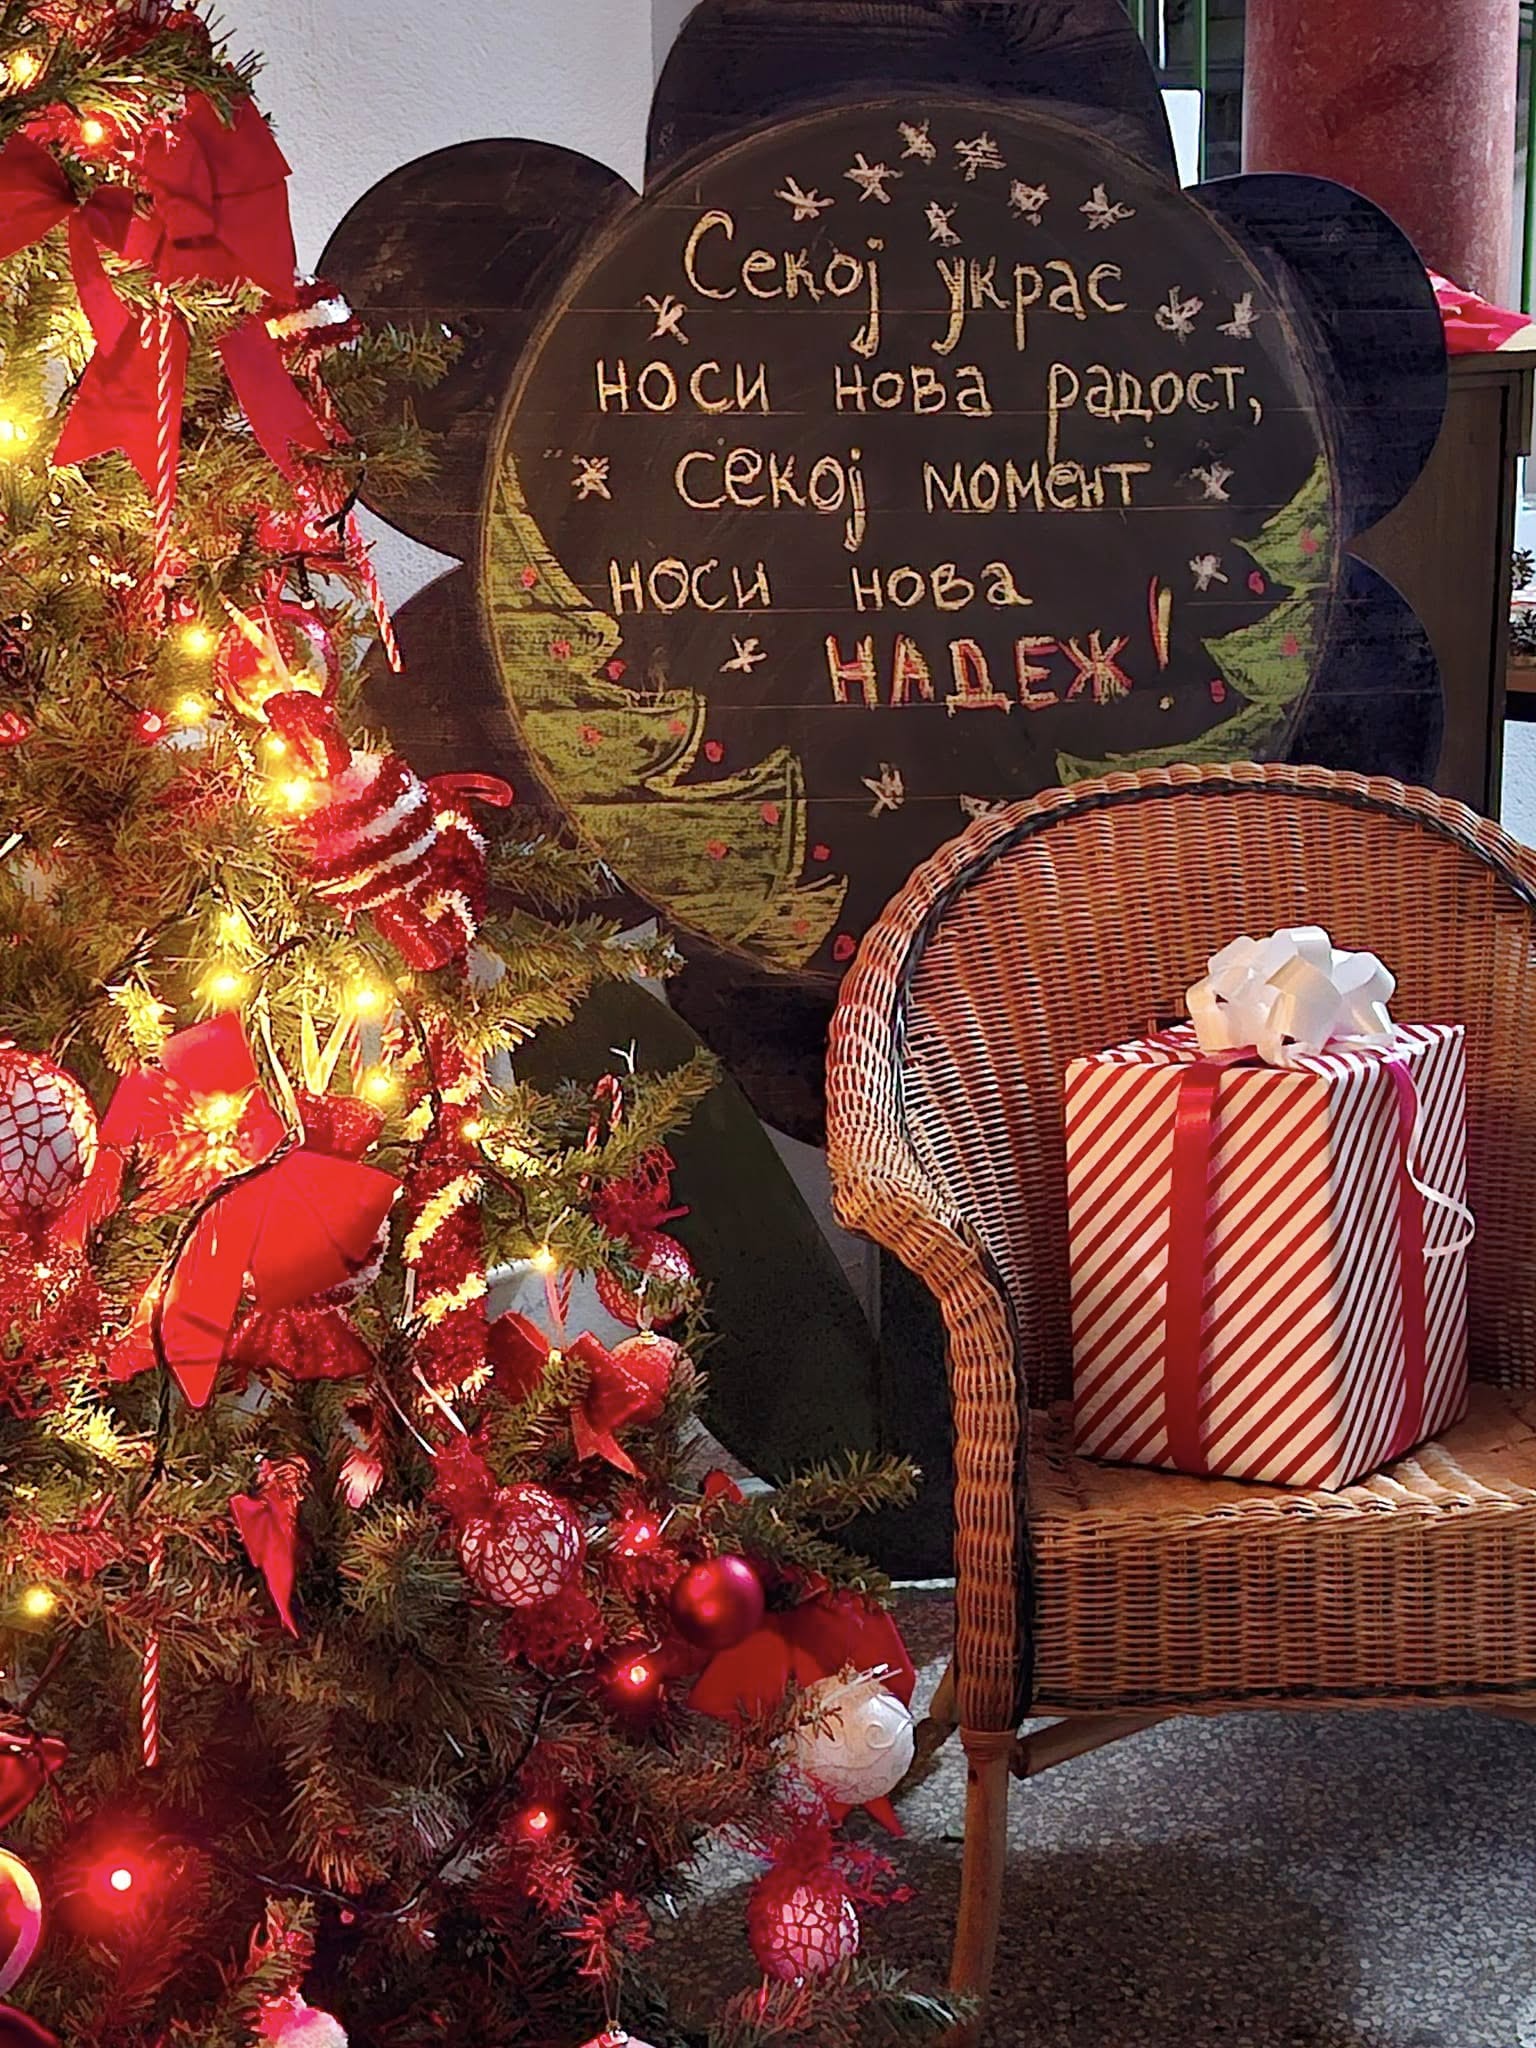 Секој украс
носи нова радост,
секој момент
носи нова
НАДЕЖ!